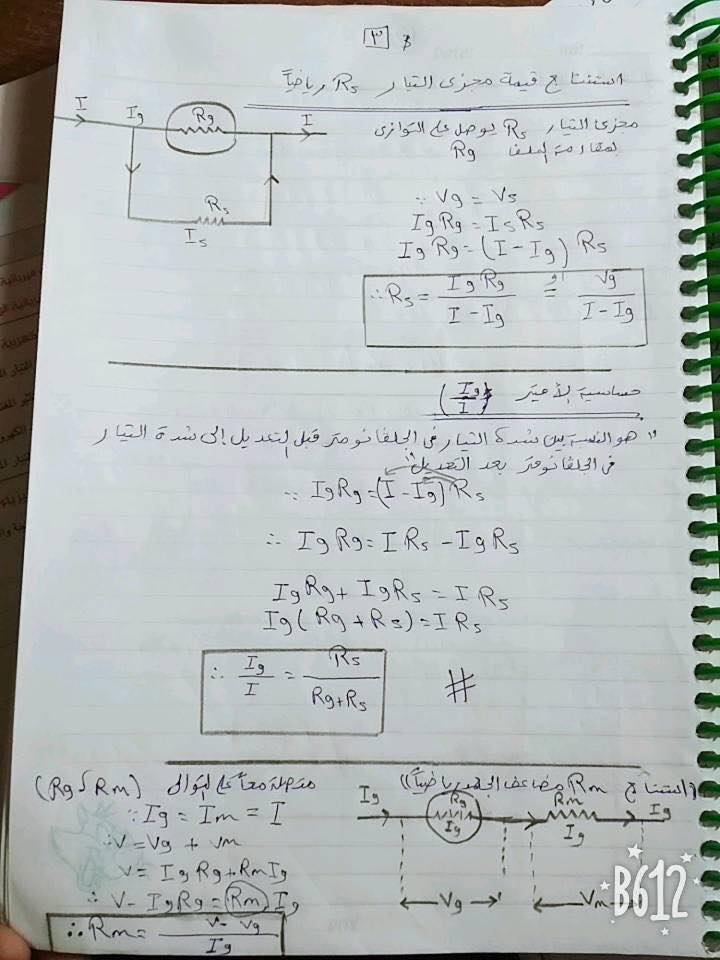 ٣
استنتاج قيمة مجزئ التيار Rs رياضياً
مجزئ التيار Rs يوصل على التوازى
بمقاومة الملف Rg
I Ig Rg I
Rs
Is
∵ Vg = Vs
Ig Rg = Is Rs
Ig Rg = (I - Ig) Rs
∴ Rs = Ig Rg / I - Ig = أو Vg / I - Ig
حساسية الأميتر (Ig / I)
" هو النسبة بين شدة التيار فى الجلفانومتر قبل التعديل إلى شدة التيار
فى الجلفانومتر بعد التعديل "
∵ Ig Rg = (I - Ig) Rs
∴ Ig Rg = I Rs - Ig Rs
Ig Rg + Ig Rs = I Rs
Ig (Rg + Rs) = I Rs
∴ Ig / I = Rs / Rg + Rs #
استنتاج Rm مضاعف الجهد رياضياً
(Rg , Rm) متصلة معاً على التوالى
Ig Rg Ig Rm Ig Ig
Vg Vm
∵ Ig = Im = I
∴ V = Vg + Vm
V = Ig Rg + Rm Ig
∴ V - Ig Rg = Rm Ig
∴ Rm = V - Vg / Ig
B612